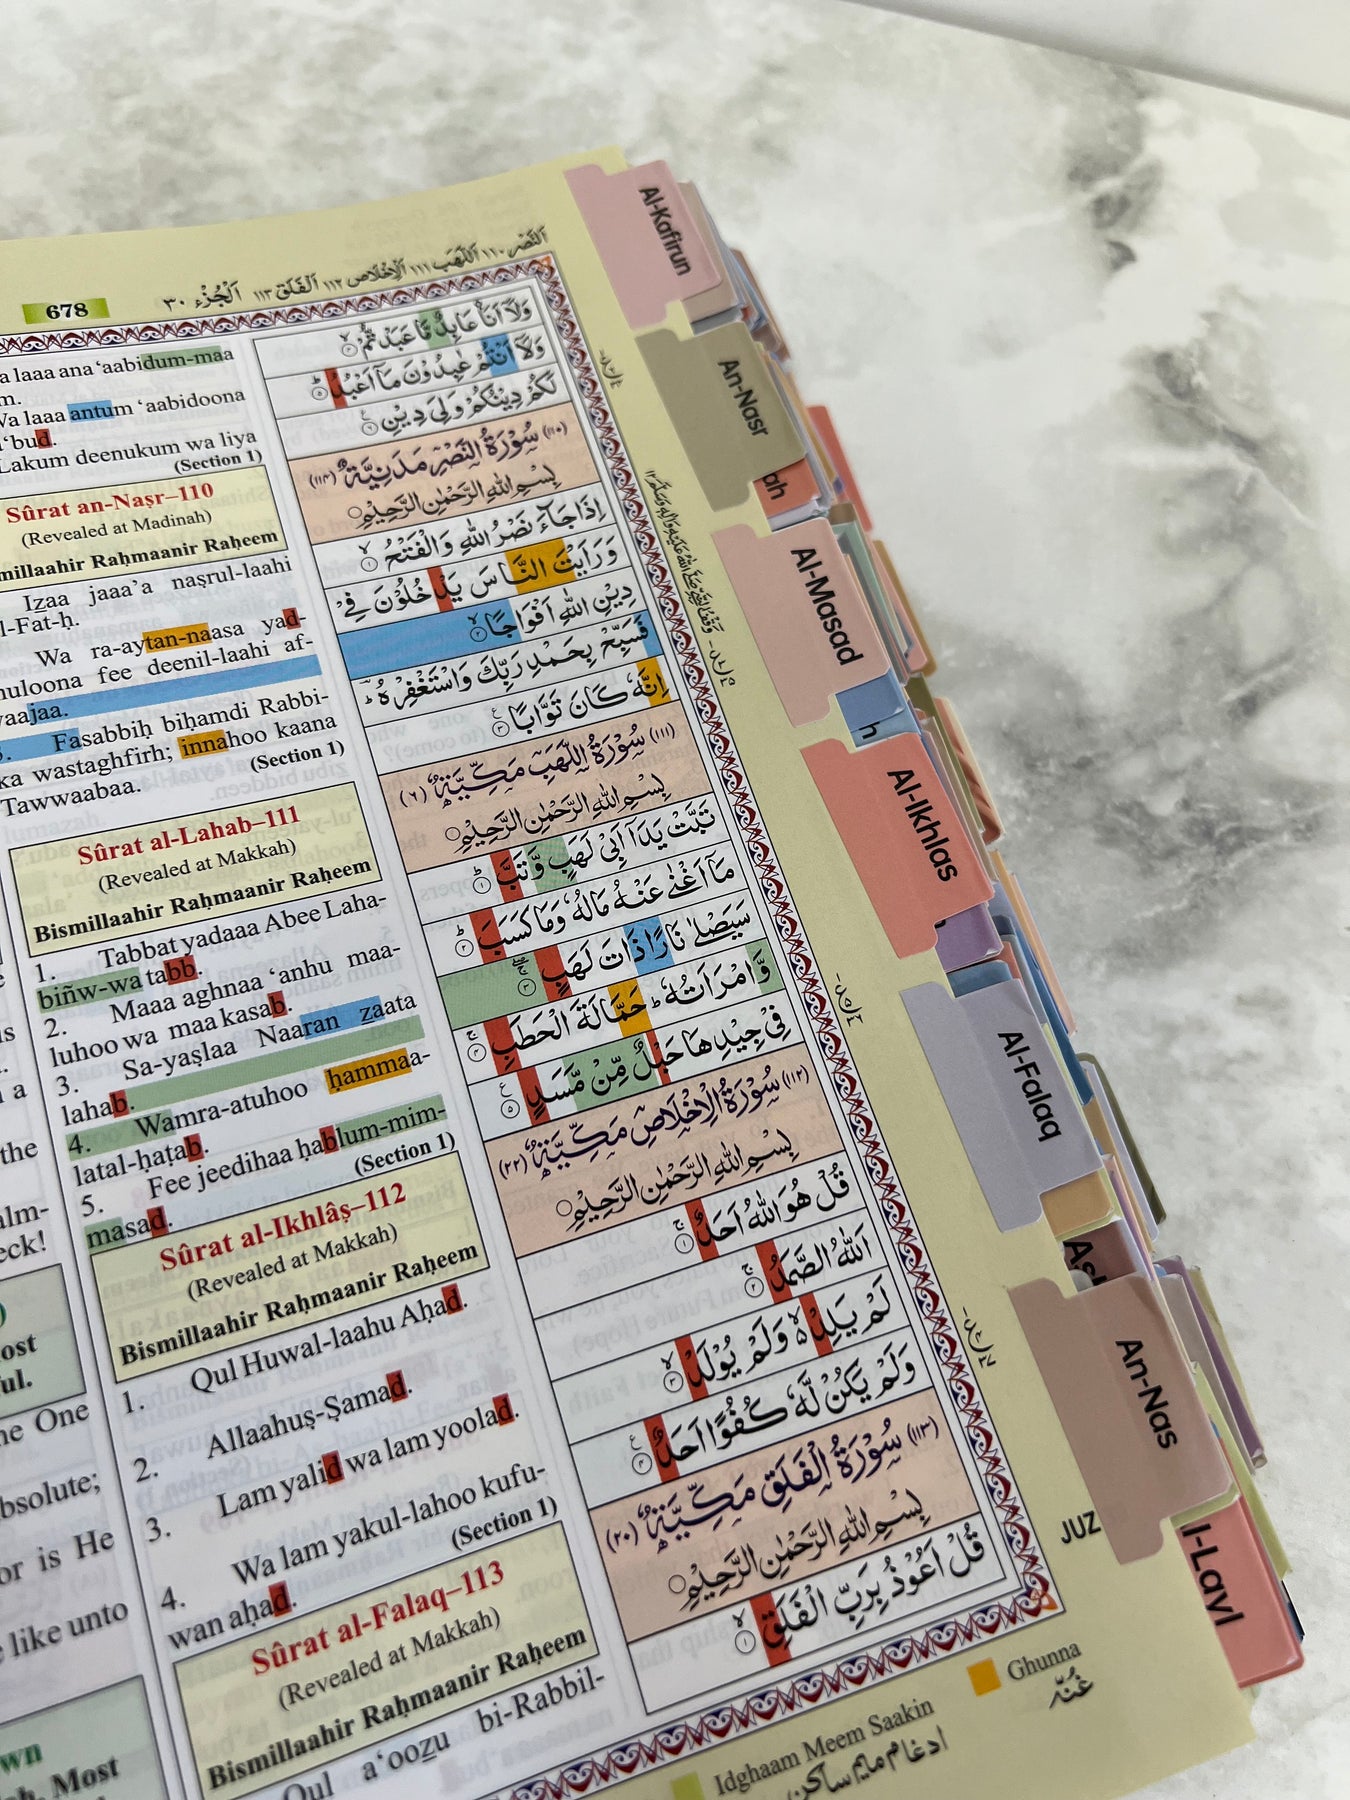 678
اَلنَّصْر ١١٠ اَللَّهَب ١١١ اَلْاِخْلَاص ١١٢ اَلْفَلَق ١١٣ اَلْجُزْء ٣٠
a laaa ana ‘aabidum-maa
m.
Wa laaa antum ‘aabidoona
‘bud.
Lakum deenukum wa liya
(Section 1)
Sûrat an-Naṣr–110
(Revealed at Madinah)
millaahir Raḥmaanir Raḥeem
Izaa jaaa’a naṣrul-laahi
l-Fat-ḥ.
Wa ra-aytan-naasa yad-
huloona fee deenil-laahi af-
vaajaa.
3. Fasabbiḥ biḥamdi Rabbi-
ka wastaghfirh; innahoo kaana
Tawwaabaa.
(Section 1)
Sûrat al-Lahab–111
(Revealed at Makkah)
Bismillaahir Raḥmaanir Raḥeem
1. Tabbat yadaaa Abee Laha-
biñw-wa tabb.
2. Maaa aghnaa ‘anhu maa-
luhoo wa maa kasab.
3. Sa-yaṣlaa Naaran zaata
lahab.
4. Wamra-atuhoo ḥammaa-
latal-ḥaṭab.
5. Fee jeedihaa ḥablum-mim-
masad.
(Section 1)
Sûrat al-Ikhlâṣ–112
(Revealed at Makkah)
Bismillaahir Raḥmaanir Raḥeem
1. Qul Huwal-laahu Aḥad.
2. Allaahuṣ-Ṣamad.
3. Lam yalid wa lam yoolad.
4. Wa lam yakul-lahoo kufu-
wan aḥad.
(Section 1)
Sûrat al-Falaq–113
(Revealed at Makkah)
Bismillaahir Raḥmaanir Raḥeem
Qul a‘oozu bi-Rabbil-
وَلَآ اَنَا عَابِدٌ مَّا عَبَدْتُّمْ ۙ ٤
وَلَآ اَنْتُمْ عٰبِدُوْنَ مَآ اَعْبُدُ ۭ ٥
لَكُمْ دِيْنُكُمْ وَلِيَ دِيْنِ ٦
(١١٠) سُوْرَةُ النَّصْرِ مَدَنِيَّةٌ (١١٤)
بِسْمِ اللّٰهِ الرَّحْمٰنِ الرَّحِيْمِ
اِذَا جَآءَ نَصْرُ اللّٰهِ وَالْفَتْحُ ۙ ١
وَرَاَيْتَ النَّاسَ يَدْخُلُوْنَ فِيْ
دِيْنِ اللّٰهِ اَفْوَاجًا ۙ ٢
فَسَبِّحْ بِحَمْدِ رَبِّكَ وَاسْتَغْفِرْهُ ۭ
اِنَّهٗ كَانَ تَوَّابًا ٣
(١١١) سُوْرَةُ اللَّهَبِ مَكِّيَّةٌ (٦)
بِسْمِ اللّٰهِ الرَّحْمٰنِ الرَّحِيْمِ
تَبَّتْ يَدَآ اَبِيْ لَهَبٍ وَّتَبَّ ۭ ١
مَآ اَغْنٰى عَنْهُ مَالُهٗ وَمَا كَسَبَ ۭ ٢
سَيَصْلٰى نَارًا ذَاتَ لَهَبٍ ٣
وَّامْرَاَتُهٗ ۭ حَمَّالَةَ الْحَطَبِ ٤
فِيْ جِيْدِهَا حَبْلٌ مِّنْ مَّسَدٍ ٥
(١١٢) سُوْرَةُ الْاِخْلَاصِ مَكِّيَّةٌ (٢٢)
بِسْمِ اللّٰهِ الرَّحْمٰنِ الرَّحِيْمِ
قُلْ هُوَ اللّٰهُ اَحَدٌ ۚ ١
اَللّٰهُ الصَّمَدُ ۚ ٢
لَمْ يَلِدْ ۙ وَلَمْ يُوْلَدْ ۙ ٣
وَلَمْ يَكُنْ لَّهٗ كُفُوًا اَحَدٌ ٤
(١١٣) سُوْرَةُ الْفَلَقِ مَكِّيَّةٌ (٢٠)
بِسْمِ اللّٰهِ الرَّحْمٰنِ الرَّحِيْمِ
قُلْ اَعُوْذُ بِرَبِّ الْفَلَقِ ۙ ١
the
alm-
eck!
ost
ful.
ne One
bsolute;
or is He
like unto
wn
Most
Al-Kafirun
An-Nasr
ah
Al-Masad
h
Al-Ikhlas
Al-Falaq
As
An-Nas
JUZ
l-Layl
Ghunna
غُنّه
Idghaam Meem Saakin
ادغام میم ساکن